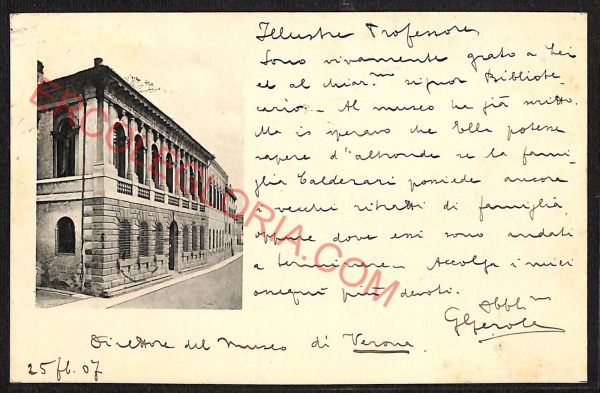 Illustre Professore
Sono vivamente grato a Lei
ed al chiar.mo signor Bibliote-
cario - Al museo ho già scritto.
Ma io speravo che Ella potesse
sapere d'altronde se la fami-
glia Calderari possiede ancora
i vecchi ritratti di famiglia,
oppure dove essi sono andati
a terminare - Accolga i miei
ossequi più devoti.
Obbl.mo
GGerola
Direttore del museo di Verona.
25 fb. 07
ERCOLEGLORIA.COM